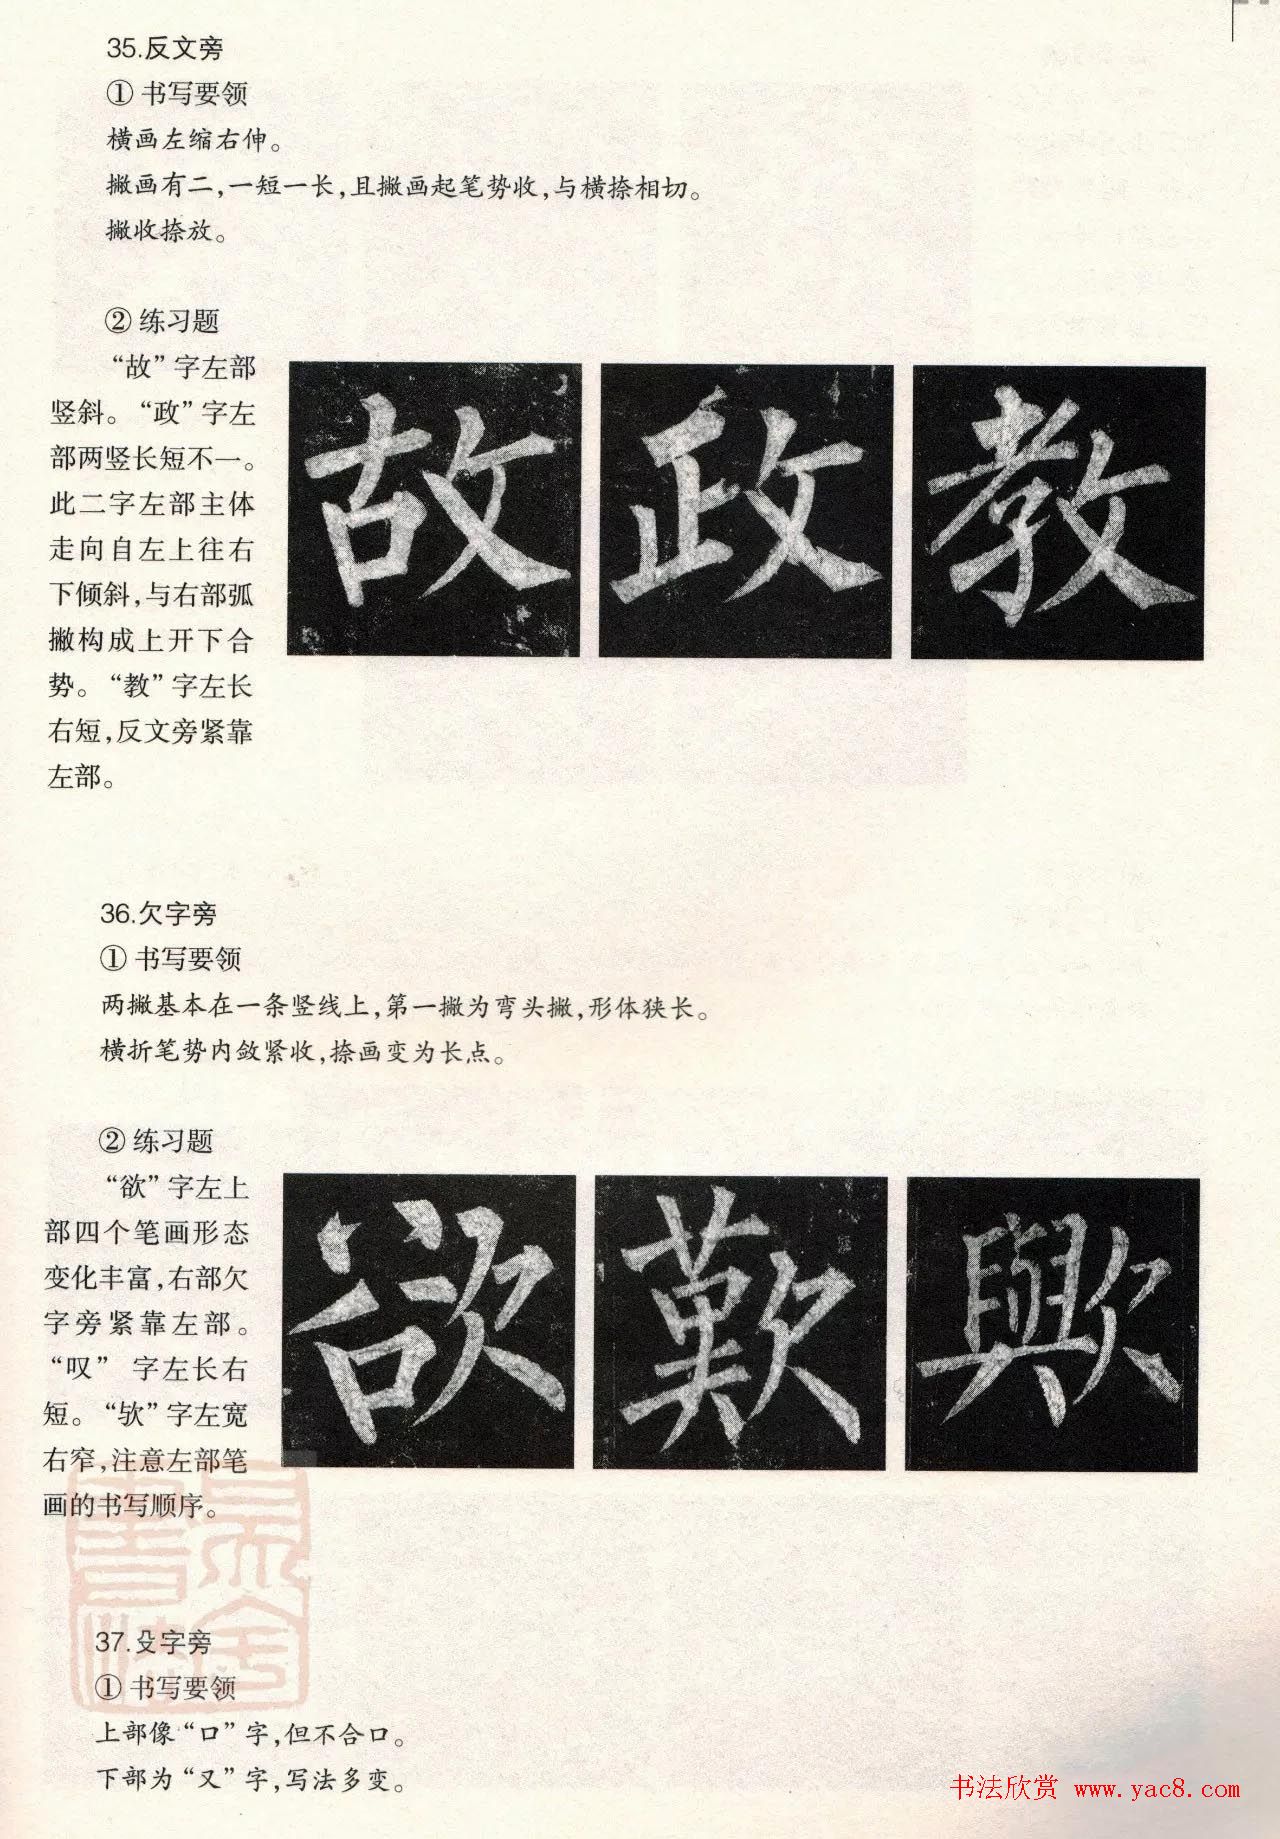 35.反文旁
① 书写要领
横画左缩右伸。
撇画有二,一短一长,且撇画起笔势收,与横捺相切。
撇收捺放。
② 练习题
“故”字左部
竖斜。“政”字左
部两竖长短不一。
此二字左部主体
走向自左上往右
下倾斜,与右部弧
撇构成上开下合
势。“教”字左长
右短,反文旁紧靠
左部。
故 政 教
36.欠字旁
① 书写要领
两撇基本在一条竖线上,第一撇为弯头撇,形体狭长。
横折笔势内敛紧收,捺画变为长点。
② 练习题
“欲”字左上
部四个笔画形态
变化丰富,右部欠
字旁紧靠左部。
“叹” 字左长右
短。“欤”字左宽
右窄,注意左部笔
画的书写顺序。
欲 歎 歟
37.殳字旁
① 书写要领
上部像“口”字,但不合口。
下部为“又”字,写法多变。
书法欣赏 www.yac8.com